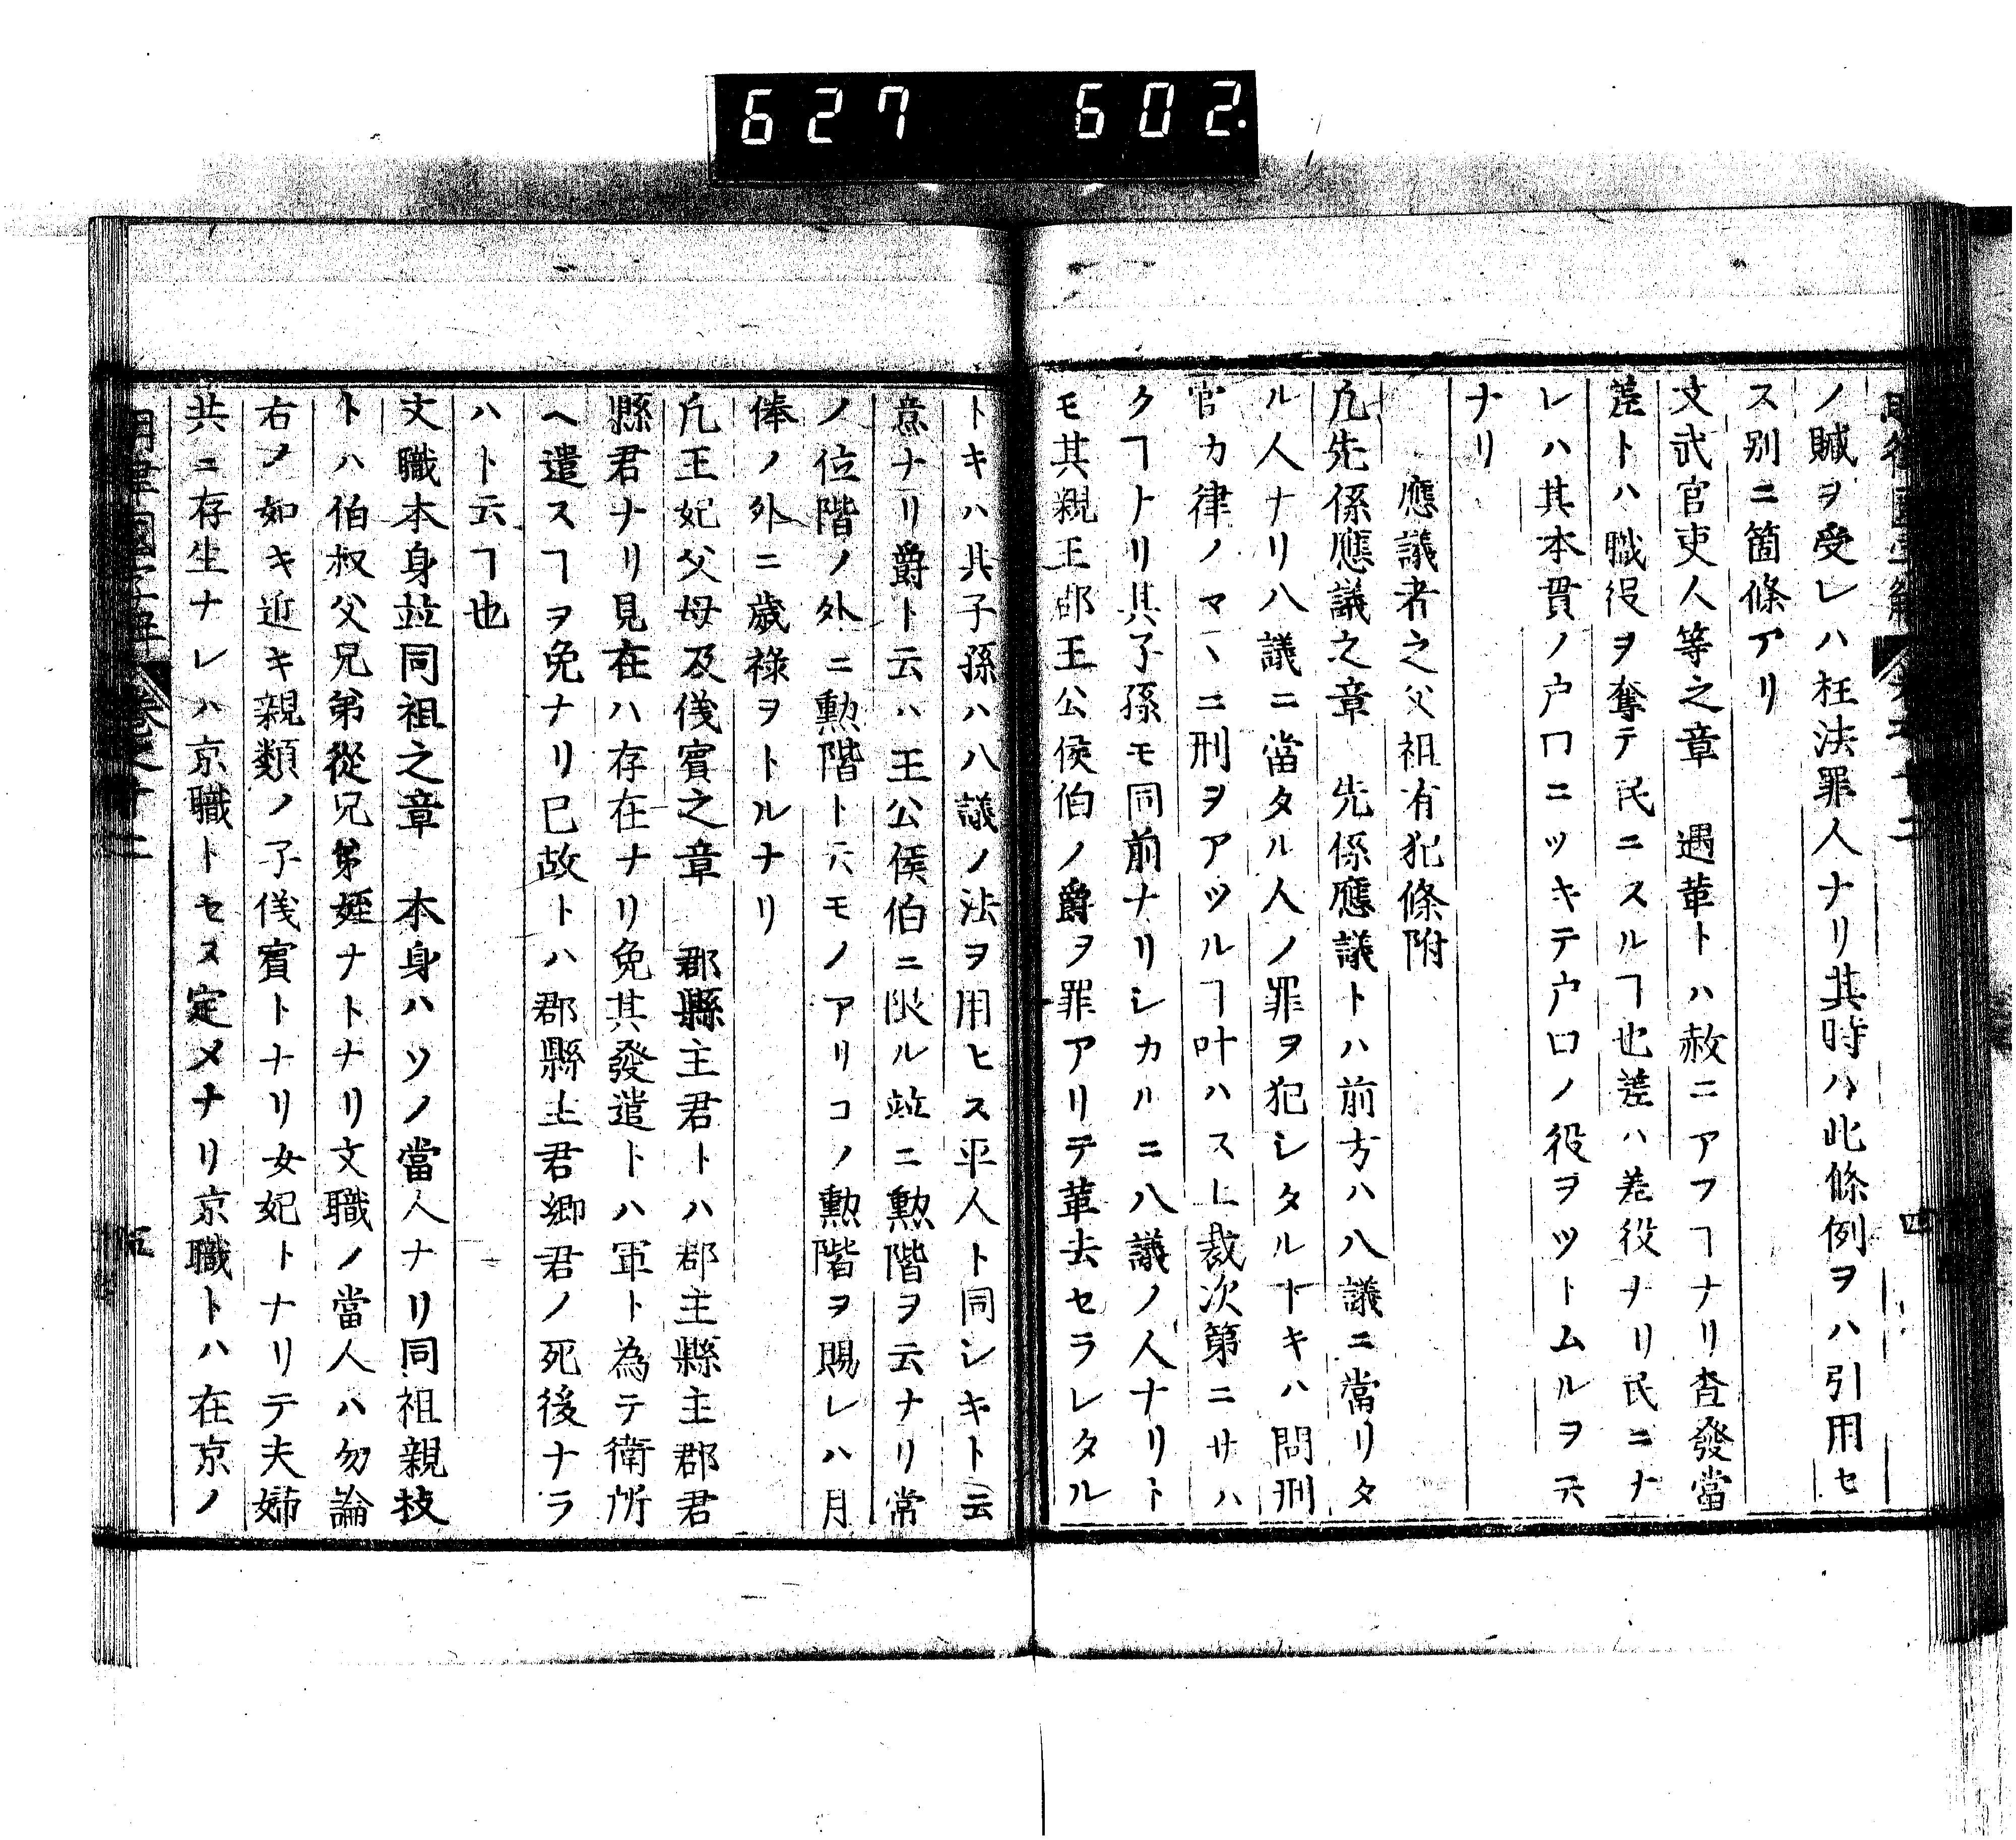 627 602.
ノ贓ヲ受レハ枉法罪人ナリ其時ハ此條例ヲハ引用セ
ス別ニ箇條アリ
文武官吏人等之章　遇革トハ赦ニアフヿナリ査發當
差トハ職役ヲ奪テ民ニスルヿ也差ハ差役ナリ民ニナ
レハ其本貫ノ户口ニツキテ户口ノ役ヲツトムルヲ云
ナリ
應議者之父祖有犯條附
凢先係應議之章　先係應議トハ前方ハ八議ニ當リタ
ル人ナリ八議ニ當タル人ノ罪ヲ犯シタルトキハ問刑
官カ律ノマヽニ刑ヲアツルヿ叶ハス上裁次第ニサハ
クヿトリ其子孫モ同前ナリシカルニ八議ノ人ナリト
モ其親王郡王公侯伯ノ爵ヲ罪アリテ革去セラレタル
トキハ其子孫ハ八議ノ法ヲ用ヒス平人ト同シキト云
意ナリ爵ト云ハ王公侯伯ニ限ル竝ニ勲階ヲ云ナリ常
ノ位階ノ外ニ勲階ト云モノアリコノ勲階ヲ賜レハ月
俸ノ外ニ歳禄ヲトルナリ
凢王妃父母及儀賓之章　郡縣主君トハ郡主縣主郡君
縣君ナリ見在ハ存在ナリ免其發遣トハ軍ト為テ衛所
ヘ遣スヿヲ免ナリ已故トハ郡縣主君郷君ノ死後ナラ
ハト云ヿ也
文職本身竝同祖之章　本身ハソノ當人ナリ同祖親枝
トハ伯叔父兄弟從兄弟姪ナトナリ文職ノ當人ハ勿論
右ノ如キ近キ親類ノ子儀賓トナリ女妃トナリテ夫婦
共ニ存生ナレハ京職トセス定メナリ京職トハ在京ノ